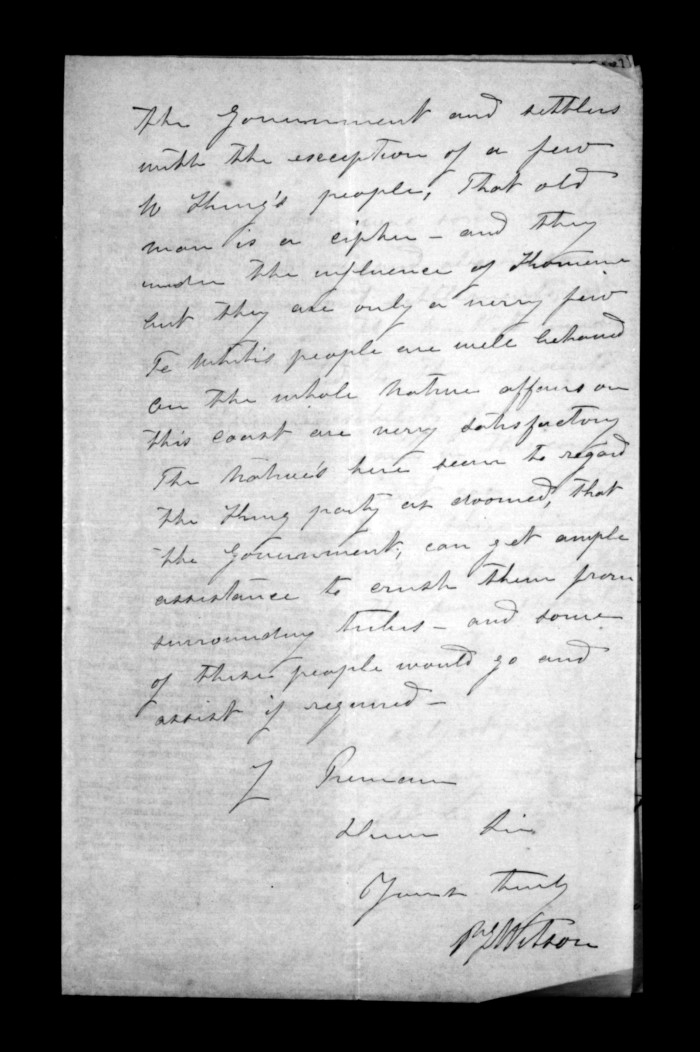 the Government and settlers
with the exception of a few
W King's people, That old
man is a cipher – and they
under the influence of Komene
but they are only a very few
Te Whiti's people are well behaved
on the whole Native affairs on
this coast are very satisfactory
The Native's here seem to regard
the King party as doomed, that
the Government, can get ample
assistance to crush them from
surrounding tribes – and some
of these people would go and
assist if required –
I Remain
Dear Sir
Yours truly
Wilson